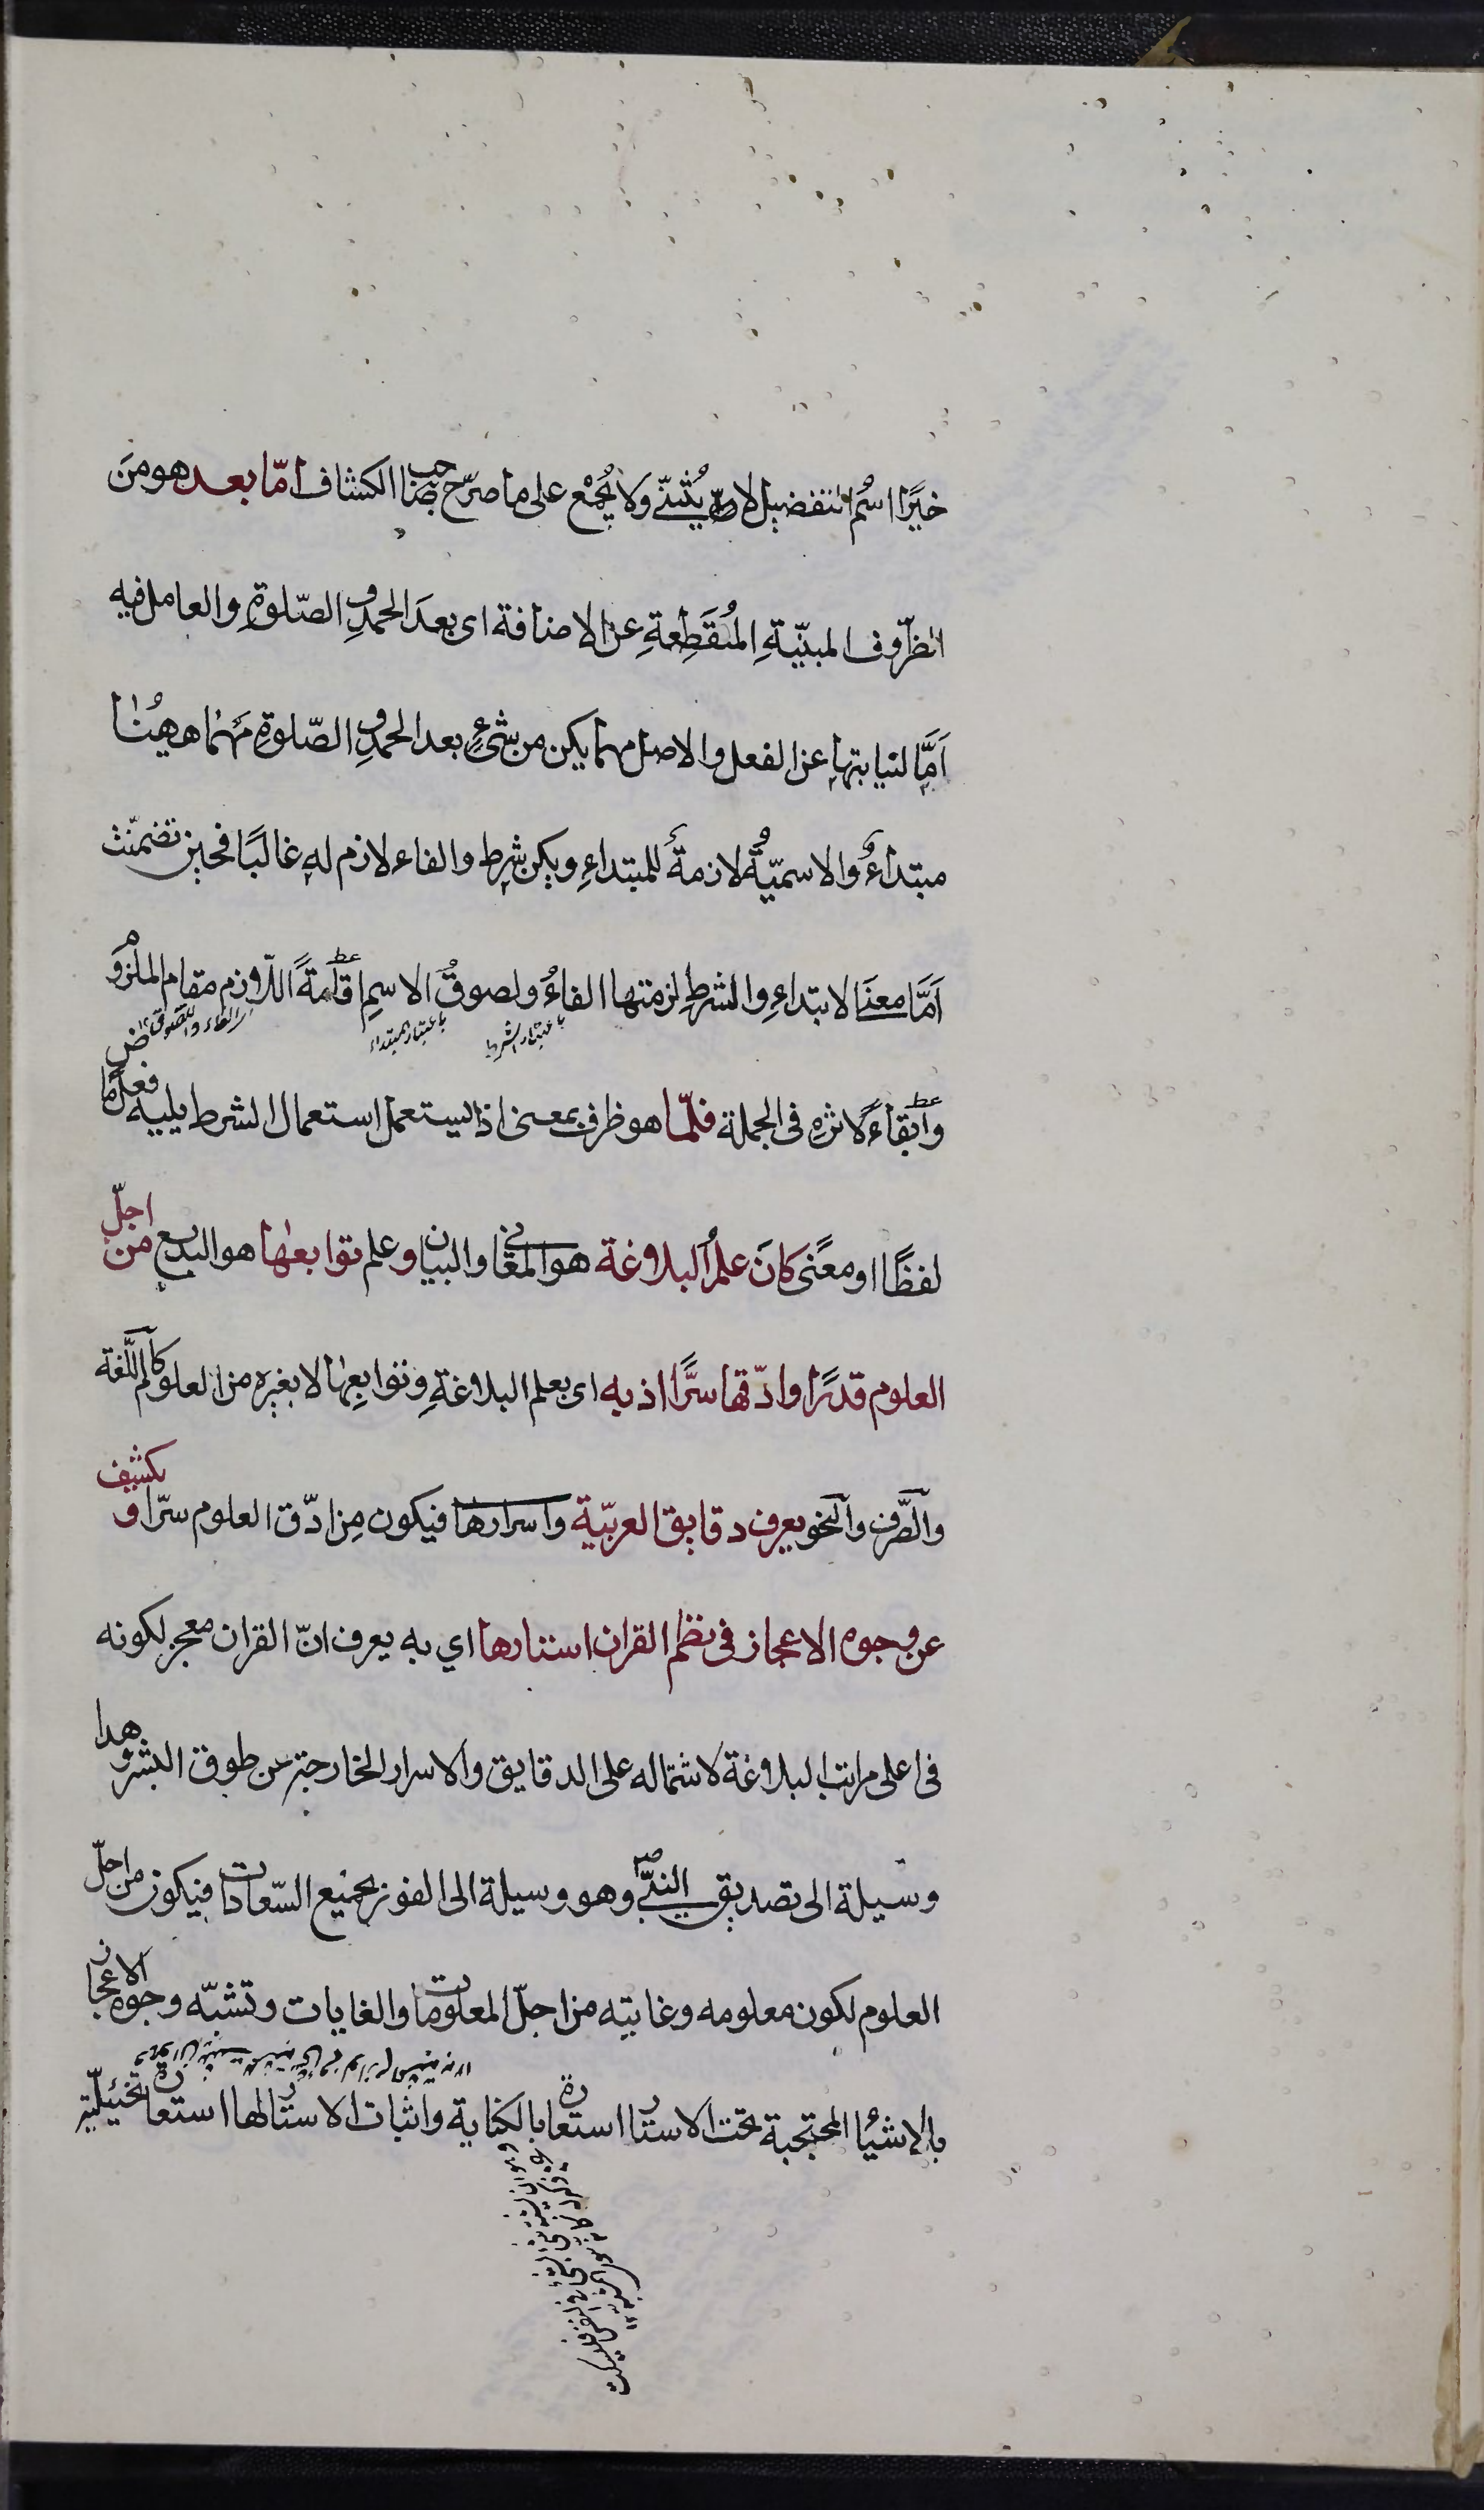 خيرًا اسم التفضيل لا يُثنّى ولا يُجمع على ما صرّح صاحب الكشاف امّا بعد هو من
الظروف المبنيّةِ المُنقَطِعةِ عن الاضافة اى بعدَ الحمدِ و الصّلوةِ والعامل فيه
اَمَّا لنيابتها عن الفعل والاصل مهما يكن من شىءٍ بعد الحمدِ و الصّلوةِ مَهما ههُنا
مبتداءٌ والاسميّةُ لازمةٌ للمبتداءِ ويكن شرط والفاء لازم له غالبًا فحين تضمّنت
اَمَّا معنَا الابتداءِ والشرطِ لزمتها الفاءُ ولصوقُ الاسمِ اقامةً اللّازم مقام الملزوم
باعتبار الشرط
باعتبار المبتداء
وابقاءً لاثرهِ فى الجملة فلمّا هو ظرف بمعنى اذ يستعمل استعمال الشرط يليه فعل ماض
لفظًا او معنًى كانَ علمُ البلاغة هو المعانى والبيان و علم توابعها هو البديع من اجلّ
العلوم قدرًا وادّقها سرًّا اذ به اى بعلم البلاغةِ وتوابعِها لا بغيره من العلوم كاللّغة
والصَّرف والنحو يعرف دقايق العربيّة واسرارها فيكون مِن ادّق العلوم سرّا و يكشف
عن وجوه الاعجاز فى نظم القران استارها اي به يعرف انّ القران معجز لكونه
فى اعلى مراتب البلاغة لاشتماله على الدقايق والاسرار الخارجة عن طوق البشر وهذا
وسيلة الى تصديق النبىّ وهو وسيلة الى الفوز بجميع السّعادات فيكون من اجلّ
العلوم لكون معلومه وغايته من اجلّ المعلومات والغايات وتشبّه وجوه الاعجاز
بالاشيُا المحتجبة تحت الاستار استعارة بالكناية واثبات الاستار لها استعارة تخييليّة